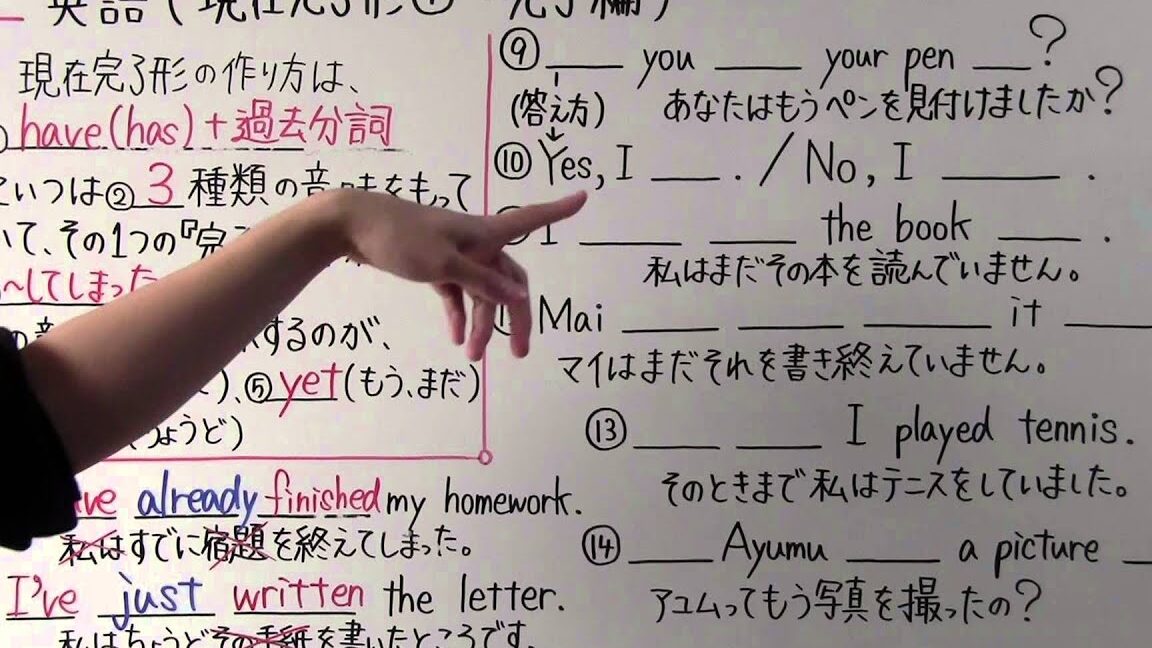 英語(現在完了形① 完了編)
現在完了形の作り方は、
have(has)+過去分詞
いつは②3種類の意味をもって
て、その1つの『完
〜してしまった
するのが、
⑤yet(もう、まだ)
ょうど)
already finished my homework.
私はすでに宿題を終えてしまった。
I've just written the letter.
私はちょうどその手紙を書いたところです。
⑨ ____ you ____ your pen ____?
(答え方) あなたはもうペンを見付けましたか?
⑩Yes, I ____. / No, I ____.
I ____ ____ the book ____.
私はまだその本を読んでいません。
Mai ____ ____ ____ it ____
マイはまだそれを書き終えていません。
⑬ ____ ____ I played tennis.
そのときまで私はテニスをしていました。
⑭ ____ Ayumu ____ a picture __
アユムってもう写真を撮ったの?